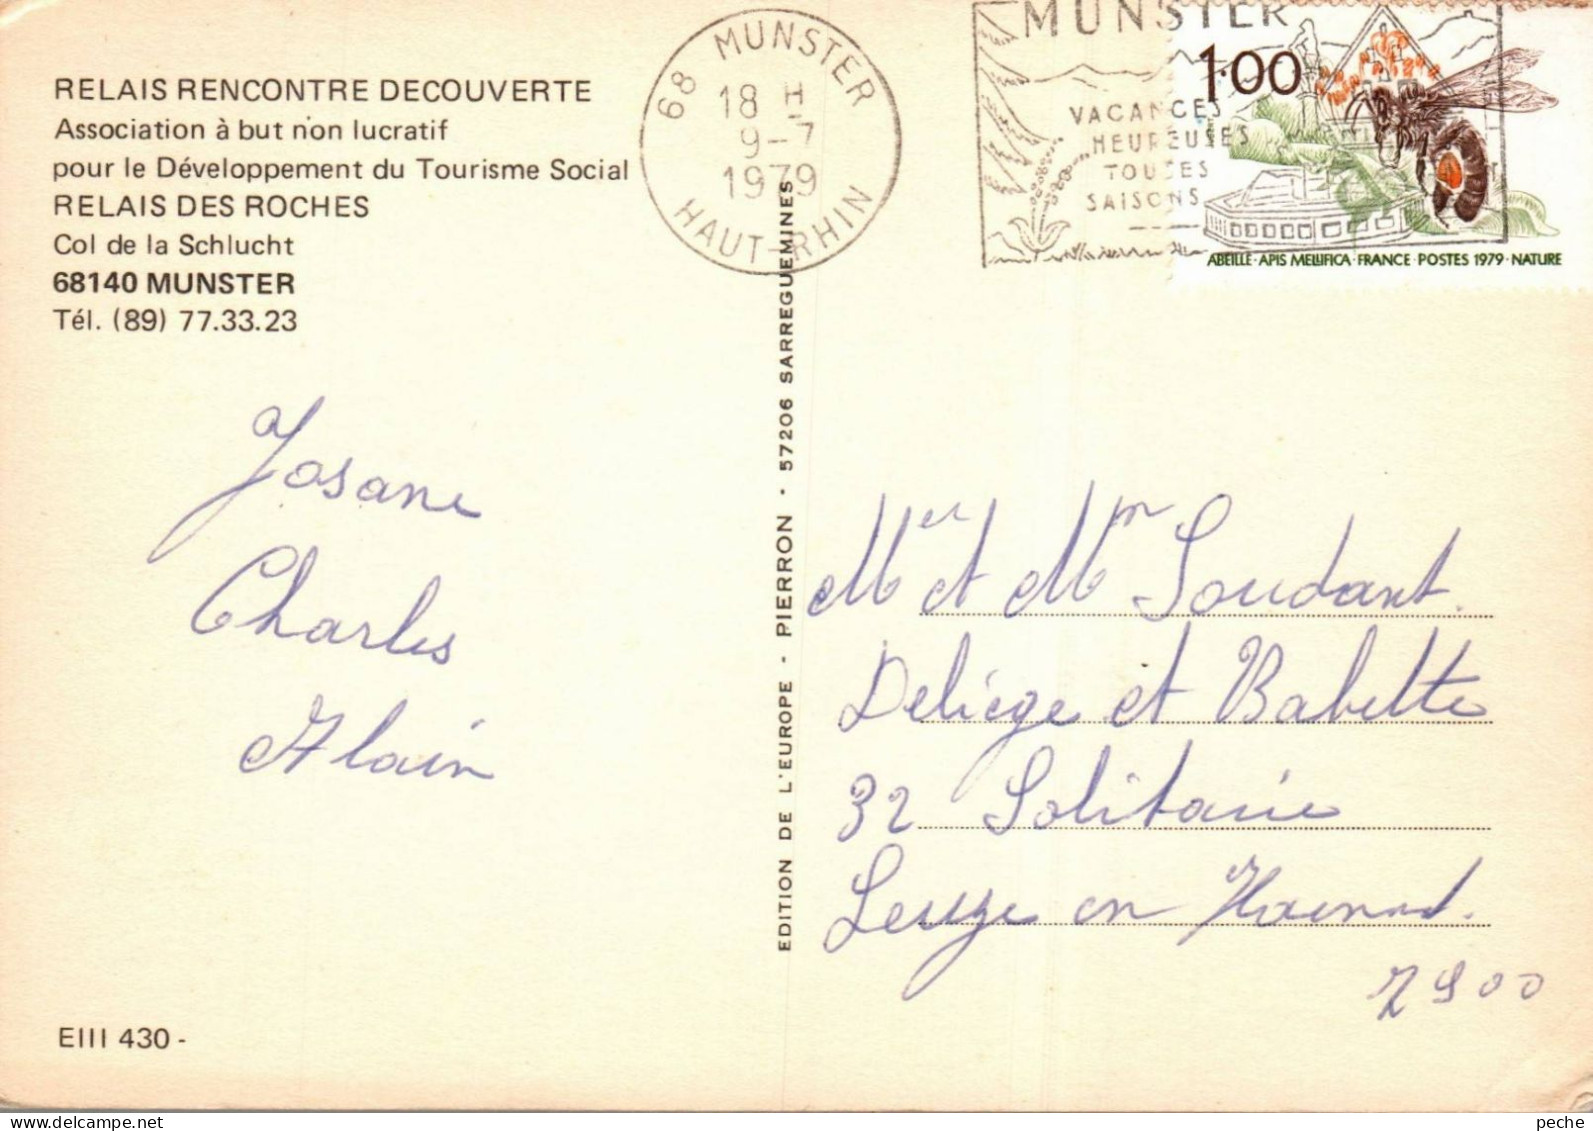 RELAIS RENCONTRE DECOUVERTE
Association à but non lucratif
pour le Développement du Tourisme Social
RELAIS DES ROCHES
Col de la Schlucht
68140 MUNSTER
Tél. (89) 77.33.23
68 MUNSTER
18 H
9-7
1979
HAUT-RHIN
MUNSTER
VACANCES
HEUREUSES
TOUTES
SAISONS
1.00
ABEILLE · APIS MELLIFICA · FRANCE · POSTES 1979 · NATURE
EDITION DE L'EUROPE - PIERRON - 57206 SARREGUEMINES
Josane
Charles
Alain
et Mr Soudant
Deliège et Babette
32 Solitaire
Leuze en Hainaut.
7900
EIII 430 -
peche